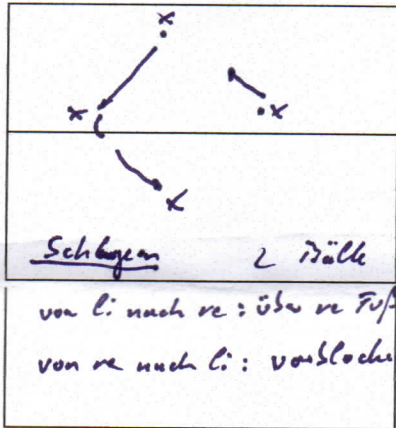 x
x x
x
Schlagen 2 Bälle
von li nach re: über re Fuß
von re nach li: